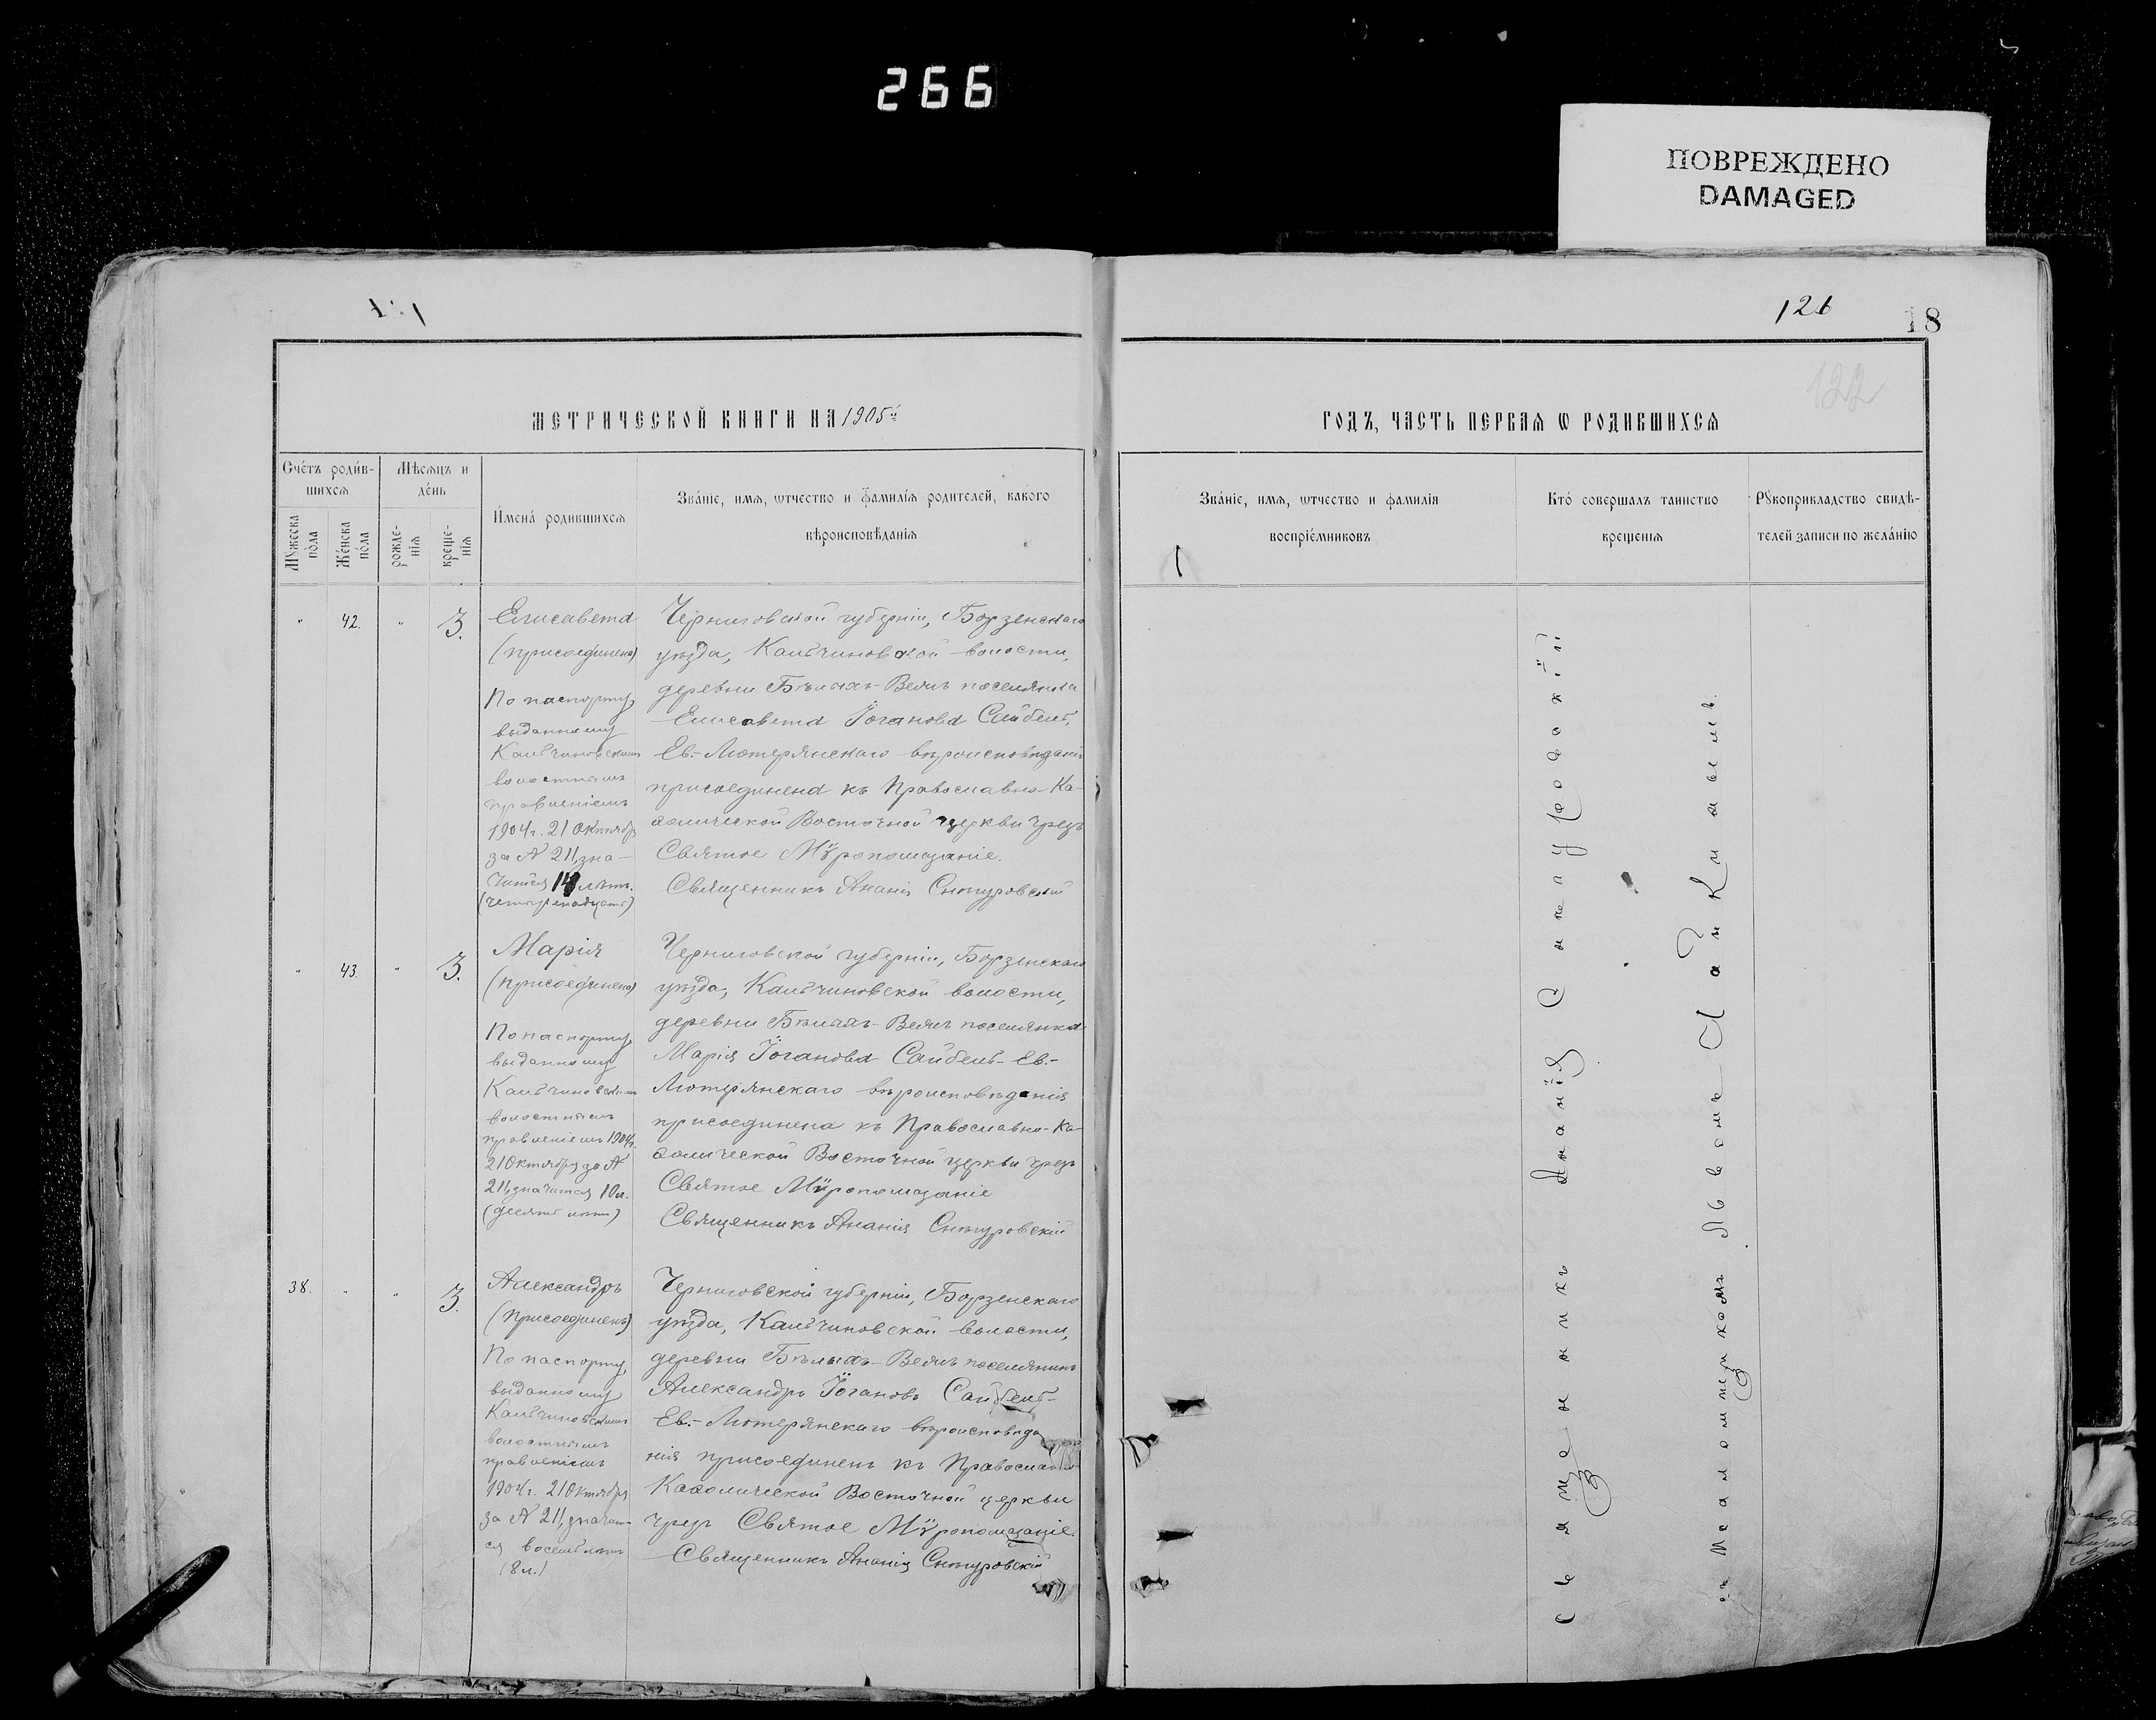 266
ПОВРЕЖДЕНО
DAMAGED
126
18
122
МЕТРИЧЕСКОЙ КНИГИ НА 1905й
ГОДЪ, ЧАСТЬ ПЕРВАЯ Ѡ РОДИВШИХСЯ
Счетъ родив-
шихся
Мѣсяцъ и
день
Мꙋжеска
пола
Женска
пола
рожде-
нія
креще-
нія
Имена родившихся
Званіе, имя, ѡтчество и фамилія родителей, какого
вѣроисповѣданія
Званіе, имя, ѡтчество и фамилія
воспріемниковъ
Кто совершалъ таинство
крещенія
Рꙋкоприкладство свидѣ-
телей записи по желанію
" 42. " 3.
Елисавета
(присоединена)
По паспорту,
выданному
Кальчиновскимъ
волостнымъ
правленіемъ
1904г. 21 Октября
за № 211, зна-
чится 14 лѣтъ.
(четырнадцать)
Черниговской губерніи, Борзенскаго
уѣзда, Кальчиновской волости,
деревни Бѣлыхъ-Вежъ поселянка
Елисавета Іоганова Сайбель,
Ев.-Лютерянскаго вѣроисповѣданія
присоединена къ Православно-Ка-
ѳолической Восточной церкви чрезъ
Святое Мѵропомазаніе.
Священникъ Ананія Снѣгуровскій
" 43. " 3.
Марія
(присоединена)
По паспорту,
выданному
Кальчиновскимъ
волостнымъ
правленіемъ 1904г.
21 Октября за №
211, значится 10 л.
(десять лѣтъ)
Черниговской губерніи, Борзенскаго
уѣзда, Кальчиновской волости,
деревни Бѣлыхъ-Вежъ поселянка
Марія Іоганова Сайбель- Ев.-
Лютерянскаго вѣроисповѣданія
присоединена къ Православно-Ка-
ѳолической Восточной церкви чрезъ
Святое Мѵропомазаніе
Священникъ Ананія Снѣгуровскій
38. " " 3.
Александръ
(присоединенъ)
По паспорту,
выданному
Кальчиновскимъ
волостнымъ
правленіемъ
1904г. 21 Октября
за № 211, значит-
ся восемь лѣтъ
(8 л.)
Черниговской губерніи, Борзенскаго
уѣзда, Кальчиновской волости,
деревни Бѣлыхъ-Вежъ поселянинъ
Александръ Іогановъ Сайбель-
Ев.-Лютерянскаго вѣроисповѣда
нія присоединенъ къ Православно
Каѳолической Восточной церкви
чрезъ Святое Мѵропомазаніе.
Священникъ Ананія Снѣгуровскій
Священникъ Ананія Снѣгуровскій
съ псаломщикомъ Львомъ